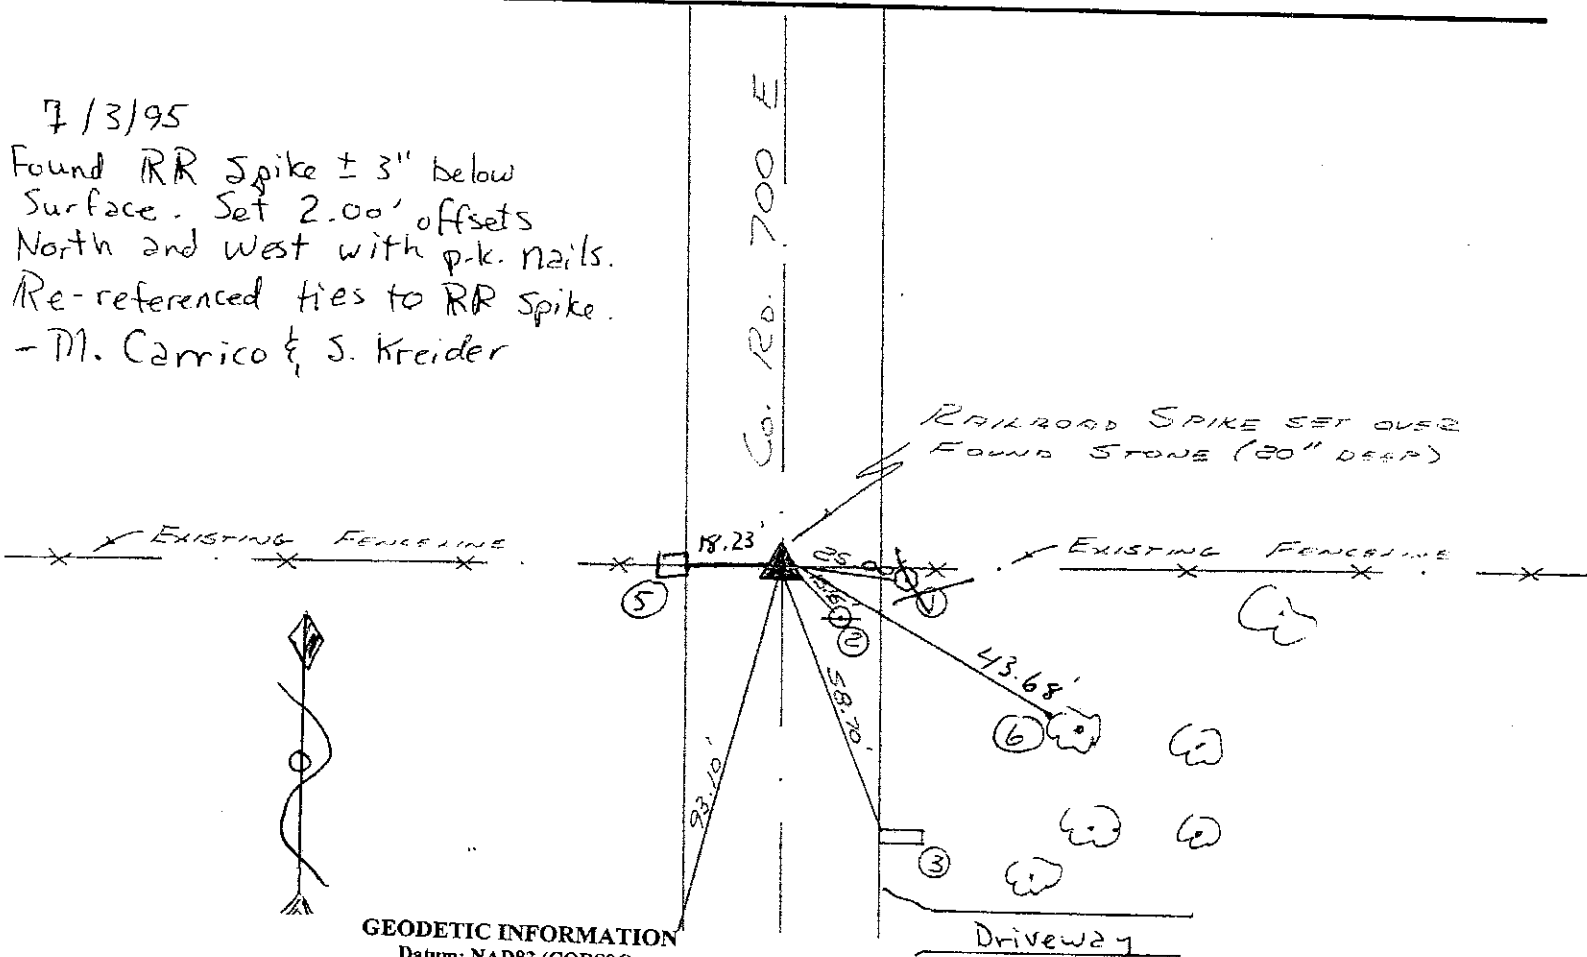 7/3/95
Found RR Spike ± 3" below
Surface. Set 2.00' offsets
North and West with p.k. nails.
Re-referenced ties to RR Spike.
- M. Carrico & S. Kreider
Co. Rd. 700 E
RAILROAD SPIKE SET OVER
FOUND STONE (20" DEEP)
EXISTING FENCELINE
18.23'
EXISTING FENCELINE
5
1
2
43.68'
58.70'
6
93.10'
3
GEODETIC INFORMATION
Datum: NAD83
Driveway